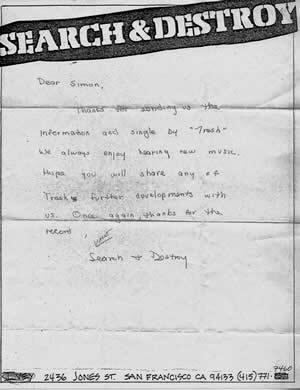 SEARCH & DESTROY
Dear Simon,
Thanks for sending us the
information and single by "Trash"
We always enjoy hearing new music.
Hope you will share any of
Trash's further developments with
us. Once again, thanks for the
record
Search + Destroy
7460
2436 JONES ST. SAN FRANCISCO CA 94133 (415) 771-